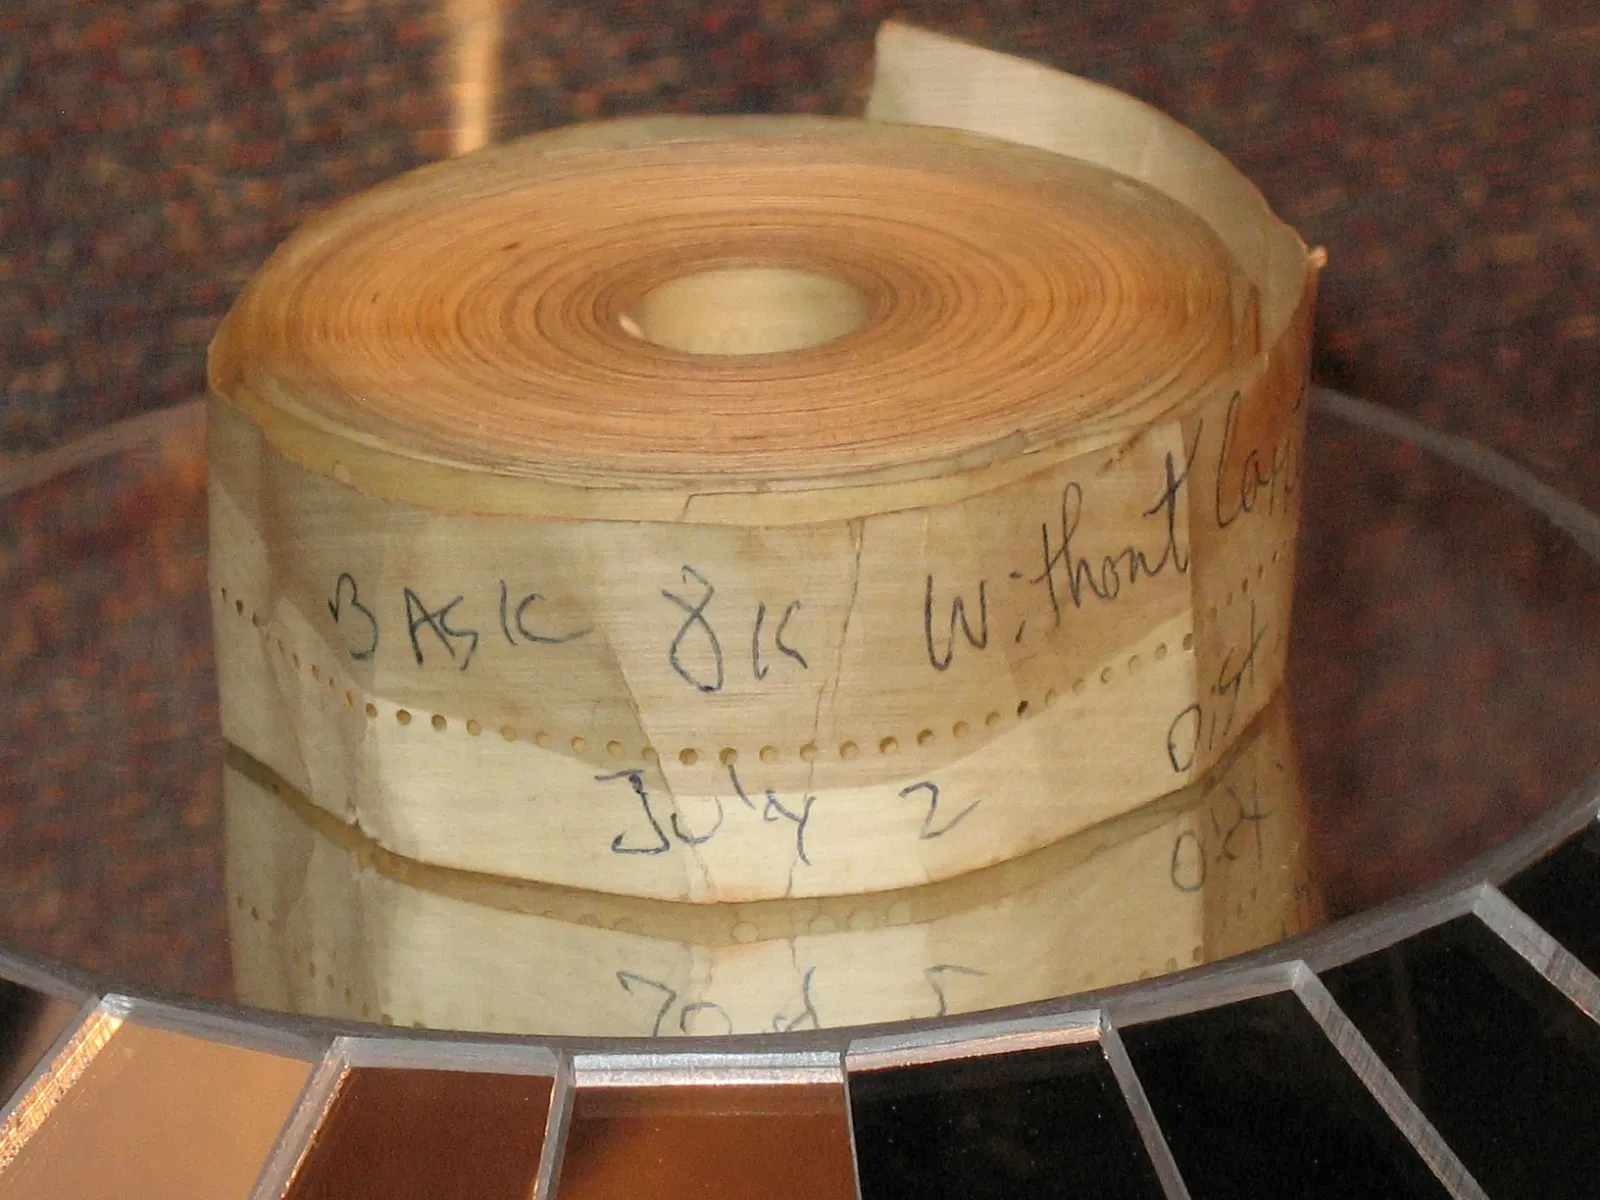 BASIC 8K Without
Dist
July 2